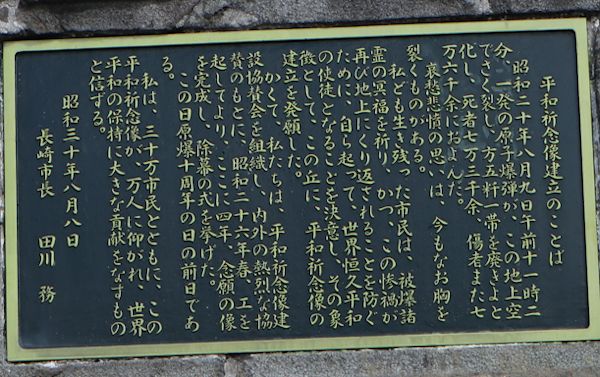 平和祈念像建立のことば
昭和二十年八月九日午前十一時二
分、一発の原子爆弾が、この地上空
でさく裂し、方五粁一帯を廃きょと
化し、死者七万三千余、傷者また七
万六千余におよんだ。
哀愁悲情の思いは、今もなお胸を
裂くものがある。
私ども生き残った市民は、被爆諸
霊の冥福を祈り、かつ、この惨禍が
再び地上にくり返されることを防ぐ
ために、自ら起って、世界恒久平和
の使徒となることを決意し、その象
徴として、この丘に、平和祈念像の
建立を発願した。
かくて、私たちは、平和祈念像建
設協賛会を組織し、内外の熱烈な協
賛のもとに、昭和二十六年春、工を
起してより、ここに四年、念願の像
を完成し、除幕の式を挙げた。
この日原爆十周年の日の前日であ
る。
私は、三十万市民とともに、この
平和祈念像が、万人に仰がれ、世界
平和の保持に大きな貢献をなすもの
と信ずる。
昭和三十年八月八日
長崎市長 田川 務